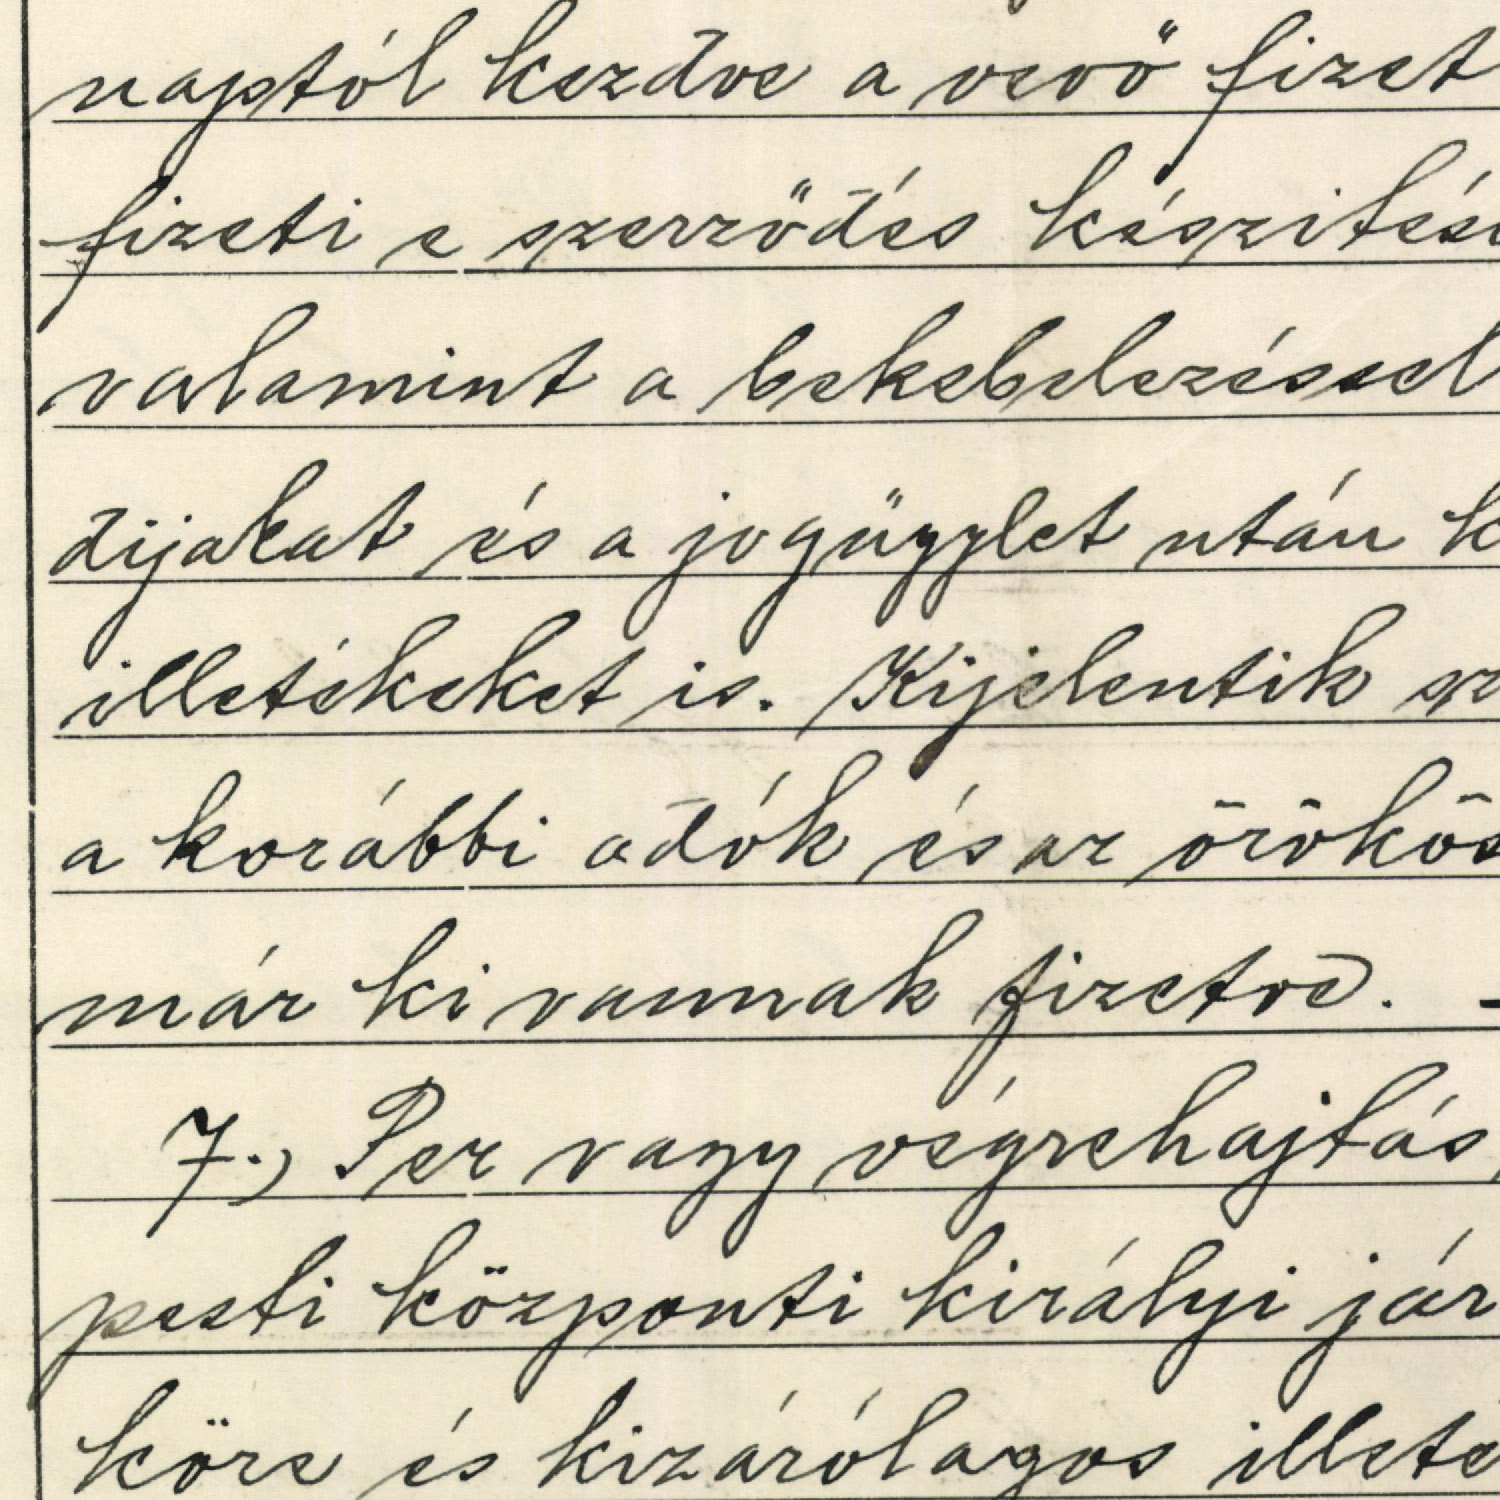 naptól kezdve a vevő fizet
fizeti e szerződés készitési
valamint a bekebelezéssel
dijakat és a jogügylet után k
illetékeket is. Kijelentik sz
a korábbi adók és az örökös
már ki vannak fizetve. -
7.) Per vagy végrehajtás
pesti központi királyi jár
köre és kizárólagos illeté